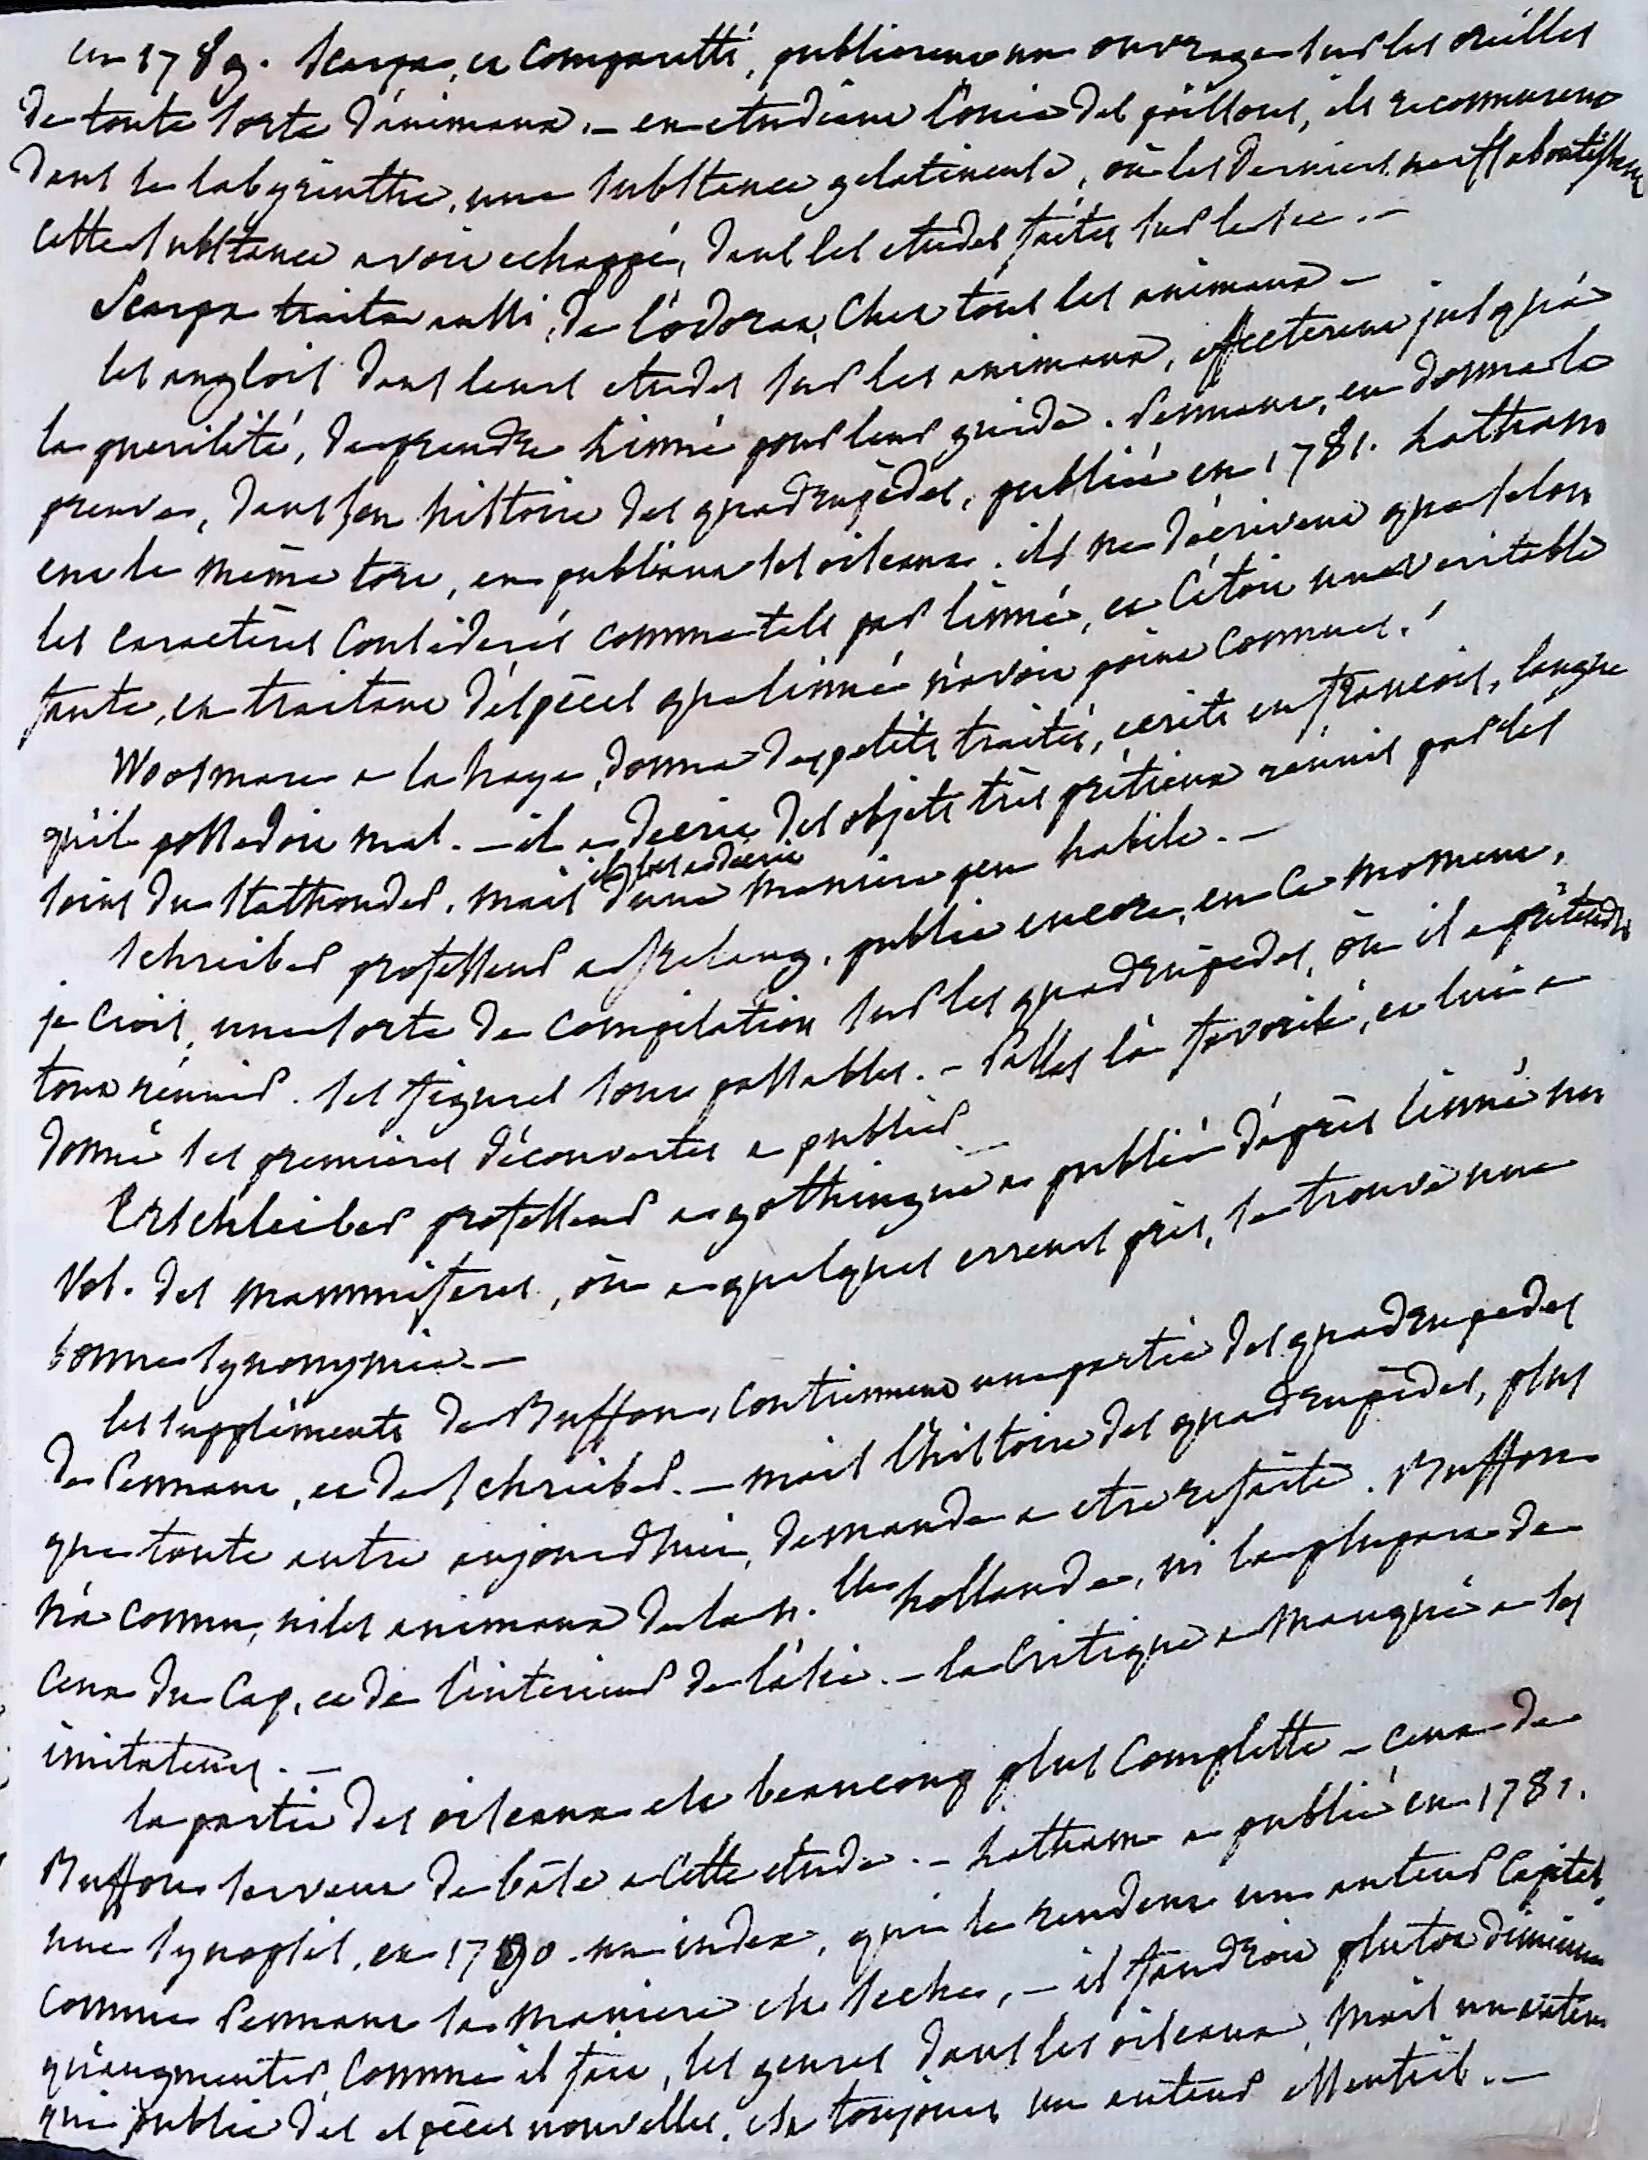 en 1789. Scarpa, et Comparetti, publierent un ouvrage sur les oreilles
de toute sorte d'animaux. – en etudiant l'ouie des poissons, ils reconnurent
dans le labyrinthe, une substance gelatineuse, où les derniers nerfs aboutissent
cette substance avoit echappé, dans les etudes faites sur le sec. –
Scarpa traita aussi, de l'odorat, chez tous les animaux –
les anglois dans leurs etudes sur les animaux, affecterent jusqu'à
la puerilité, de prendre Linné pour leur guide. Pennant, en donna la
preuve, dans son histoire des quadrupèdes, publiée en 1781. Latham
eut le même tort, en publiant les oiseaux. ils ne décrivent que selon
les caractères considerés comme tels par linné, et c'étoit une veritable
faute, en traitant d'espèces que linné n'avoit point connues.
Wosmaer a la haye, donna de petits traités, ecrits en françois, langue
qu'il possedoit mal. – il a decrit des objets très prétieux réunis par les
soins du Stathouder, mais il les a décrit d'une maniere peu habile. –
Schreiber professeur a Erelang, publie encore, en ce moment,
je crois, une sorte de compilation sur les quadrupèdes, où il a prétendu
tout réunir. ses figures sont passables. – Pallas l'a favorisé, et lui a
donné ses premieres découvertes a publier –
Erschleiber professeur a gothingue a publié d'après linné un
vol. des mammiferes, où a quelques erreurs près, se trouve une
bonne synonymie. –
les suppléments de Buffon, contiennent une partie des quadrupedes
de Pennant, et de Schreiber. – mais l'histoire des quadrupèdes, plus
que toute autre aujourd'hui, demande a etre refaite. Buffon
n'a connu, ni les animaux de la n.lle hollande, ni la plupart de
ceux du Cap, et de l'interieur de l'asie. – la critique a manqué a ses
imitateurs. –
la partie des oiseaux est beaucoup plus complette – ceux de
Buffon servent de base a cette etude. – Latham a publié en 1781.
une synopsis, en 1790. un index, qui le rendent un auteur capital,
comme Pennant sa maniere est seche, – il faudroit plutot diminuer
qu'augmenter, comme il fait, les genres dans les oiseaux, mais un auteur
qui publie des espèces nouvelles, est toujours un auteur essentiel. –